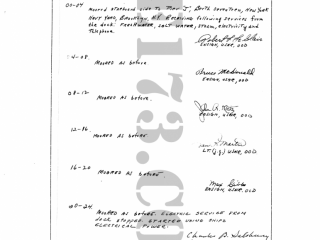 00-04
Moored starboard side to Pier J, Berth seventeen, New York
Navy Yard, Brooklyn, N.Y. Receiving following services from
the dock: Fresh water, salt water, steam, electricity and
telephone.
ENSIGN, USNR, OOD
04-08
Moored as before.
Bruce McDonald
ENSIGN, USNR, OOD
08-12
Moored as before.
John A.
ENSIGN, USNR, OOD
12-16
Moored as before.
LT.(j.g.) USNR, OOD
16-20
Moored as before.
Max
ENSIGN, USNR, OOD
20-24
Moored as before. Electric service from
dock stopped. Started using ships
electrical power.
Charles B.
173.C